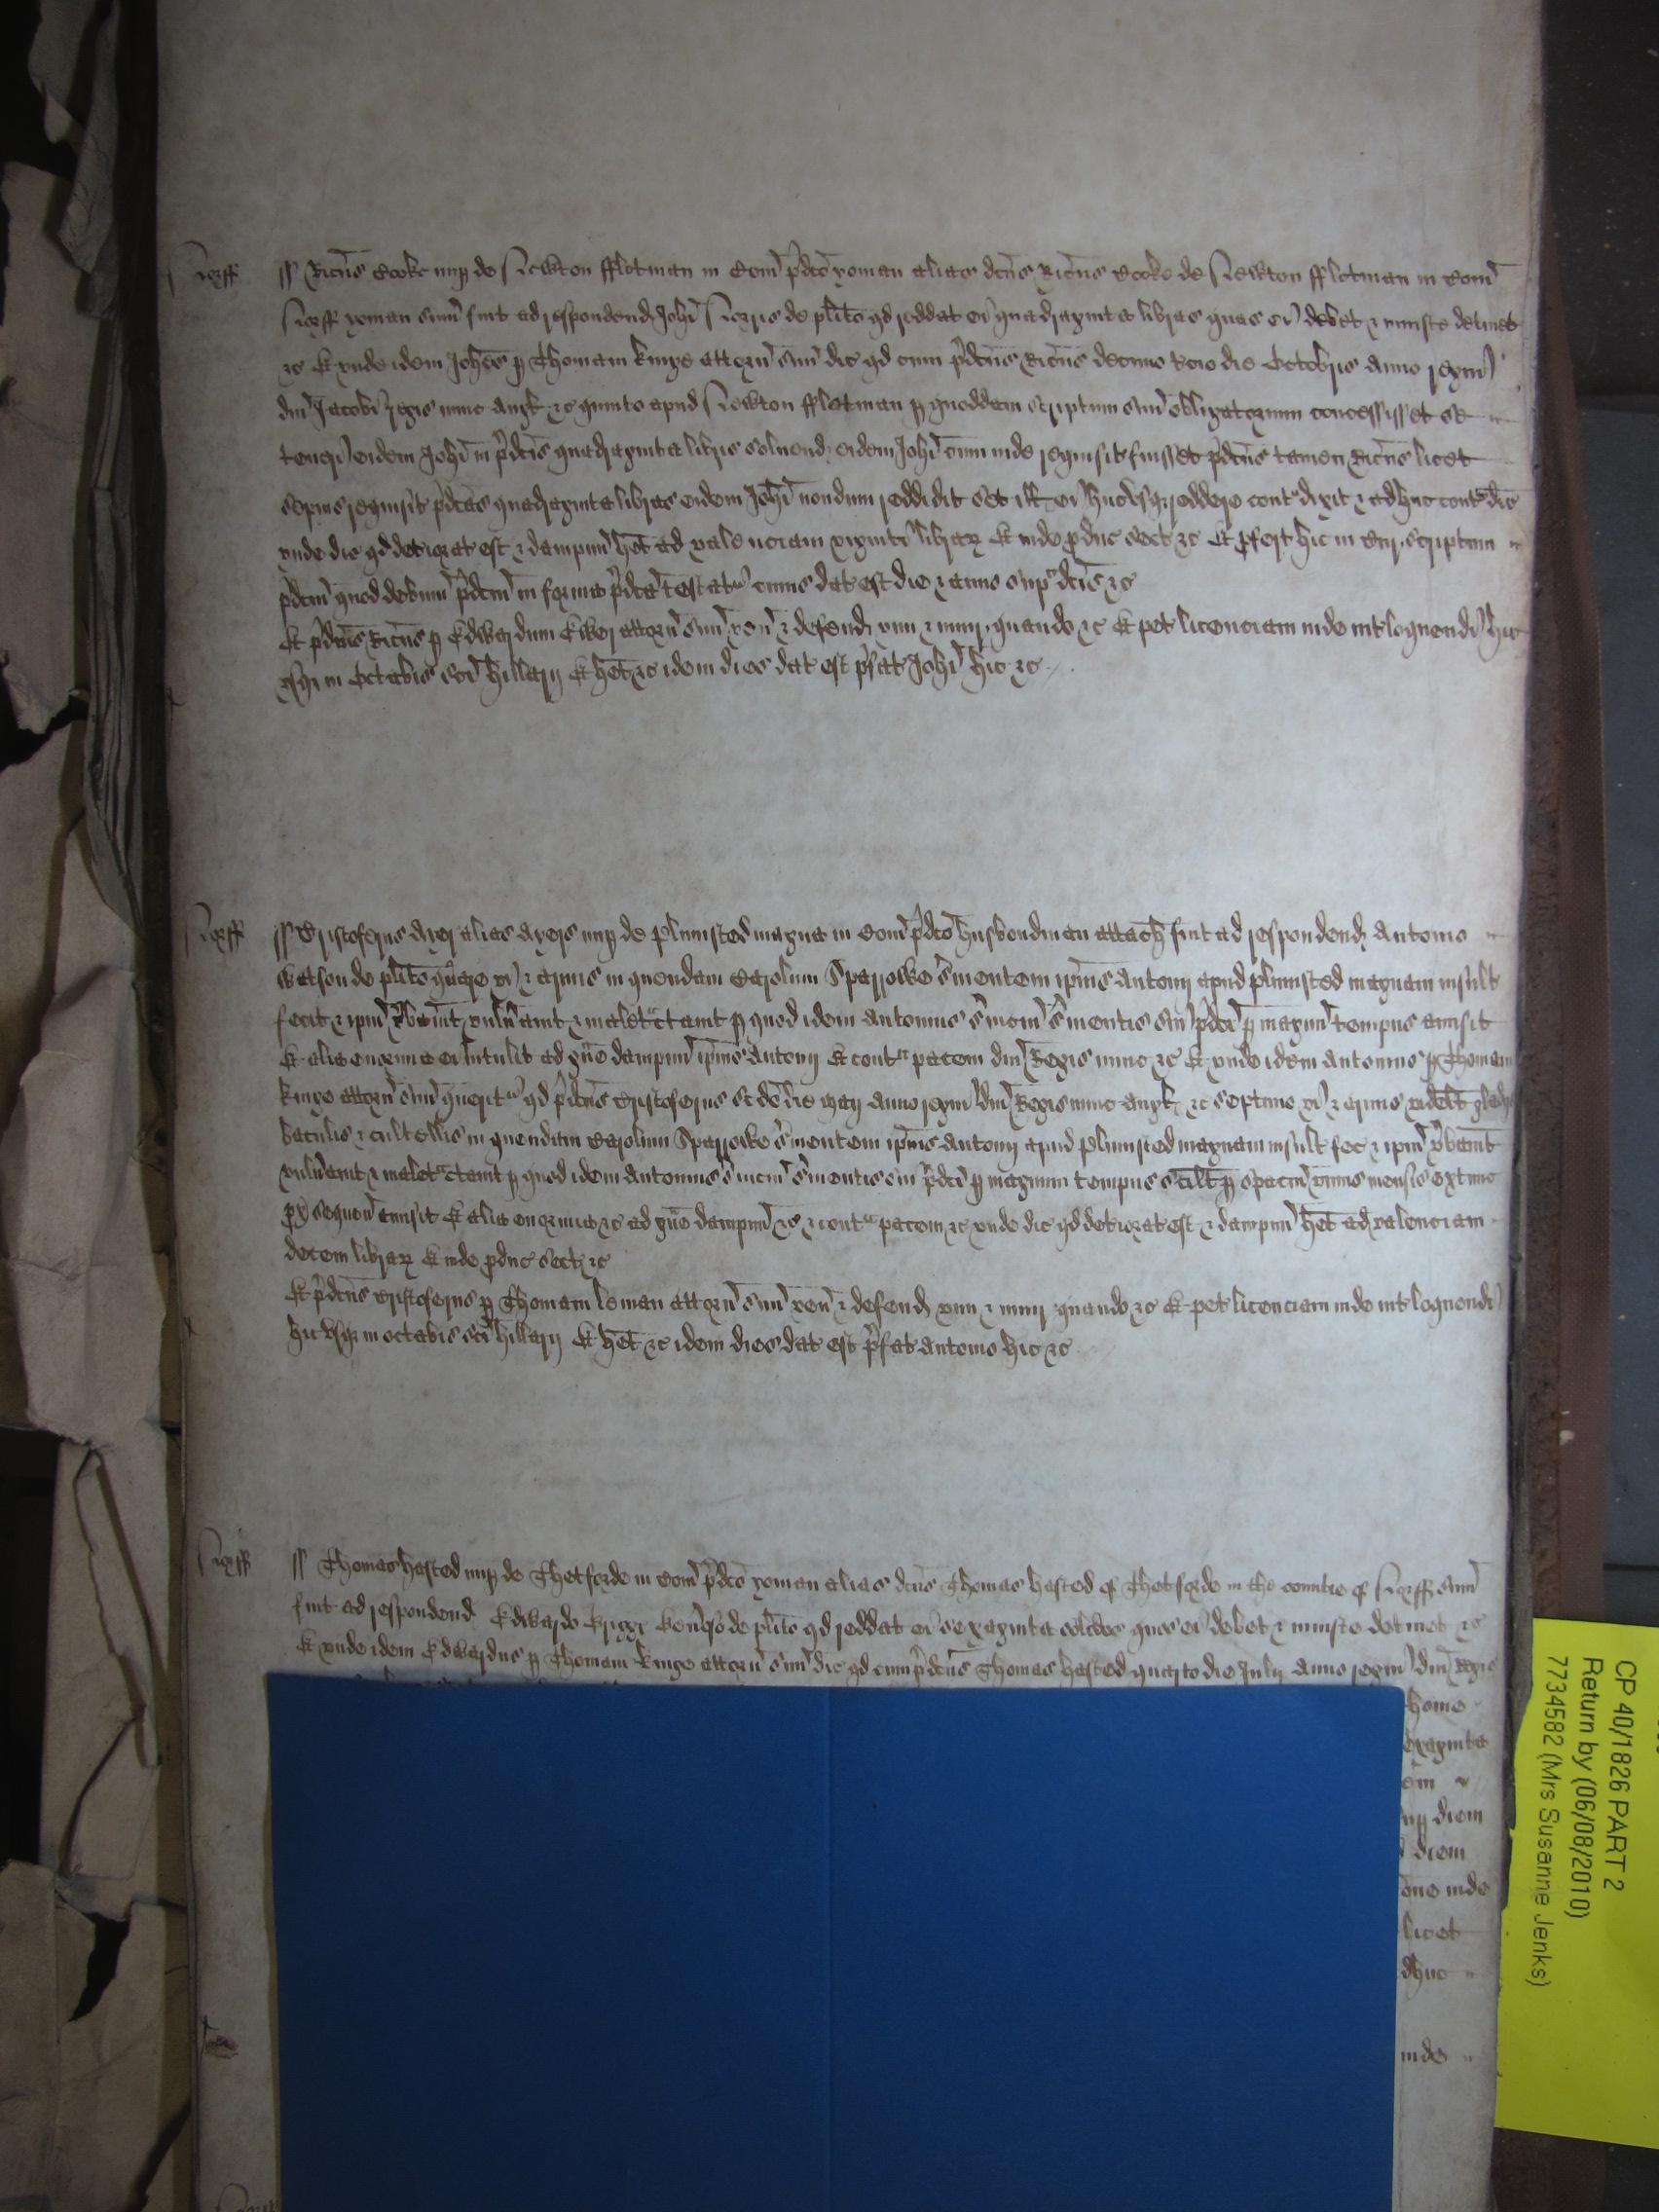 Norff
ss Ricus Cooke nup de Newton fflotman in Com pdco yoman alias dcus Ricus Cooke de Newton fflotman in Com
Norff yoman sum fuit ad respondend Johi Norris de plito qd reddat ei quadraginta libras quas ei debet & iniuste detinet
&c Et unde idem Johes p Thomam Kinge attorn suu dic qd cum pdcus Ricus decimo die Octobris anno regni
dni Jacobi Regis nunc Angl &c quinto apud Newton fflotman p quoddam scriptum suu obligatorium concessisset se
teneri eidem Johi in pdcis quadraginta libris solvend eidem Johi cum inde requisit fuisset pdcus tamen Ricus licet
sepius requisit pdcas quadraginta libras eidem Johi nondum reddidit set ill ei hucusq reddere contradixit & adhuc contradic
unde dic qd deteriorat est & dampnu het ad valenciam viginti librar Et inde pduc sect &c Et pfert hic in Cur scriptum
pdcm quod debitum pdcm in forma pdca testatur cuius dat est die & anno supradcis &c
Et pdcus Ricus p Edwardum attorn suu ven & defend vim & iniur quando &c Et pet licenciam inde intloquendi hic
usq in Octabis sci Hillarij Et het &c idem dies dat est pfat Johi hic &c
Norff
ss Cristoferus Ayer alias Ayers nup de Plumsted magna in Com pdco husbondman attach fuit ad respondend Antonio
Watson de plito quare vi & armis in quendam Carolum Sparrowe svientem ipius Antonij apud Plumsted magnam insult
fecit & ipm vbavit vulnavit & maletractavit p quod idem Antonius svicm svientis sui pdci p magnu tempus amisit
Et alia enormia ei intulit ad gve dampnu ipius Antonij Et contra pacem dni Regis nunc &c Et unde idem Antonius p Thomam
Kinge attorn suu querit qd pdcus Cristoferus scdo die Maij Anno regni dni Regis nunc Angl &c septimo vi & armis videlt gladijs
baculis & cultellis in quendam Carolum Sparrowe svientem ipius Antonij apud Plumsted magnam insult fec & ipm vbavit
vulnavit & maletractavit p quod idem Antonius svicm svientis sui pdci p magnum tempus scilt p spacm unius mensis extunc
px sequen amisit Et alia enormia &c ad gve dampnu &c & contra pacem &c unde dic qd deteriorat est & dampnu het ad valenciam
decem librar Et inde pduc sect &c
Et pdcus Cristoferus p Thomam Leman attorn suu ven & defend vim & iniur quando &c Et pet licenciam inde intloquendi
hic usq in octabis sci Hillarij Et het &c idem dies dat est pfat Antonio hic &c
Norff
ss Thomas Hasted nup de Thetforde in Com pdco yoman alias dcus Thomas Hasted of Thetforde in the countie of Norff sum
fuit ad respondend Edwardo de plito qd reddat ei sexaginta solidos quos ei debet & iniuste detinet &c
Et unde idem Edwardus p Thomam Kinge attorn suu dic qd cum pdcus Thomas Hasted quarto die Julij anno regni dni Regis
home
exaginta
em
nup diem
diem
one inde
licet
dhuc
inde
CP 40/1826 PART 2
Return by (06/08/2010)
7734582 (Mrs Susanne Jenks)